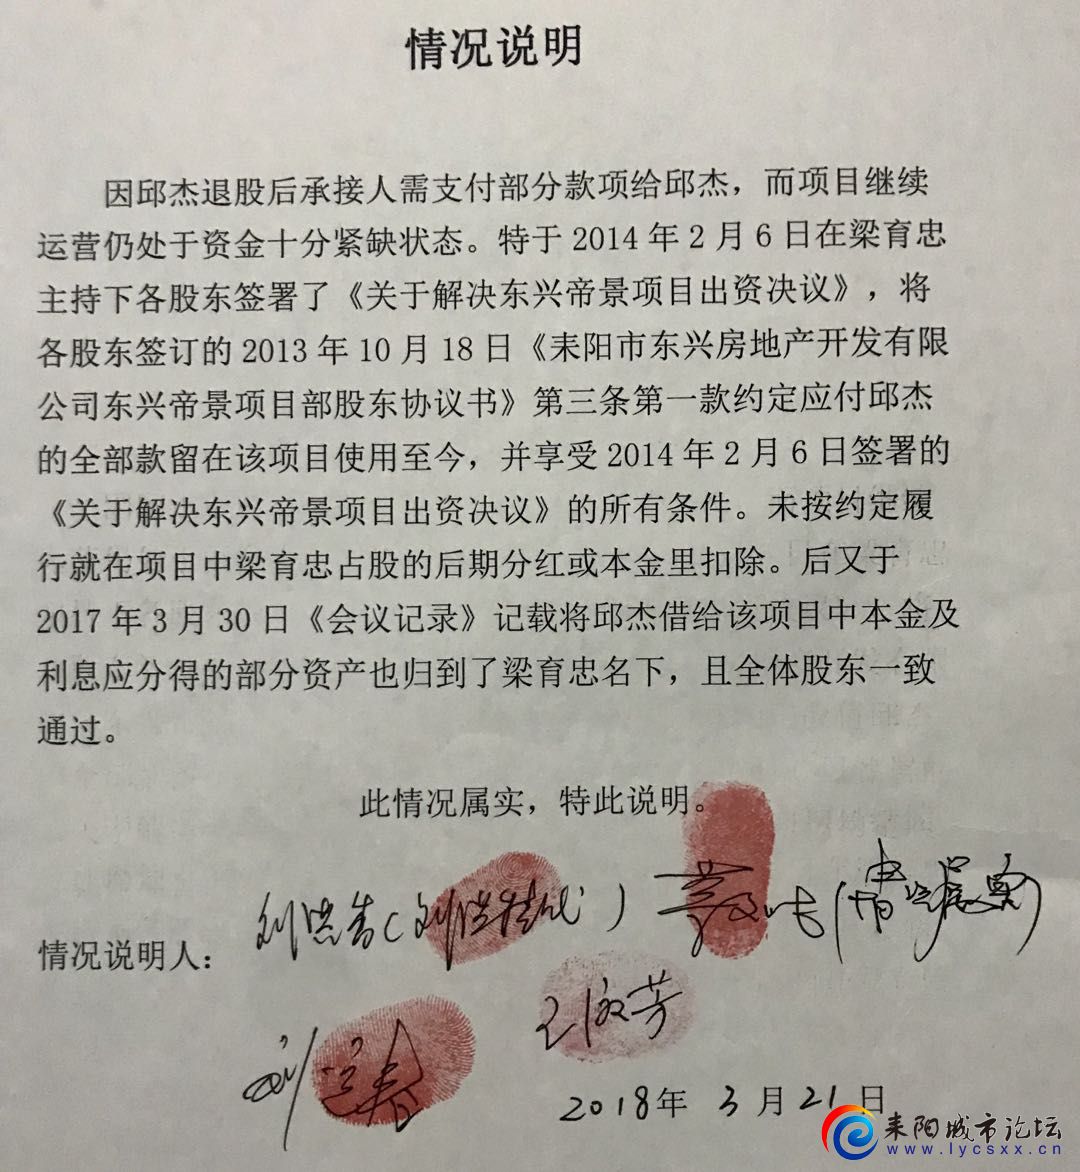 情况说明
因邱杰退股后承接人需支付部分款项给邱杰，而项目继续
运营仍处于资金十分紧缺状态。特于2014年2月6日在梁育忠
主持下各股东签署了《关于解决东兴帝景项目出资决议》，将
各股东签订的2013年10月18日《耒阳市东兴房地产开发有限
公司东兴帝景项目部股东协议书》第三条第一款约定应付邱杰
的全部款留在该项目使用至今，并享受2014年2月6日签署的
《关于解决东兴帝景项目出资决议》的所有条件。未按约定履
行就在项目中梁育忠占股的后期分红或本金里扣除。后又于
2017年3月30日《会议记录》记载将邱杰借给该项目中本金及
利息应分得的部分资产也归到了梁育忠名下，且全体股东一致
通过。
此情况属实，特此说明。
情况说明人：
2018年 3月21日
耒阳城市论坛
www.lycsxx.cn